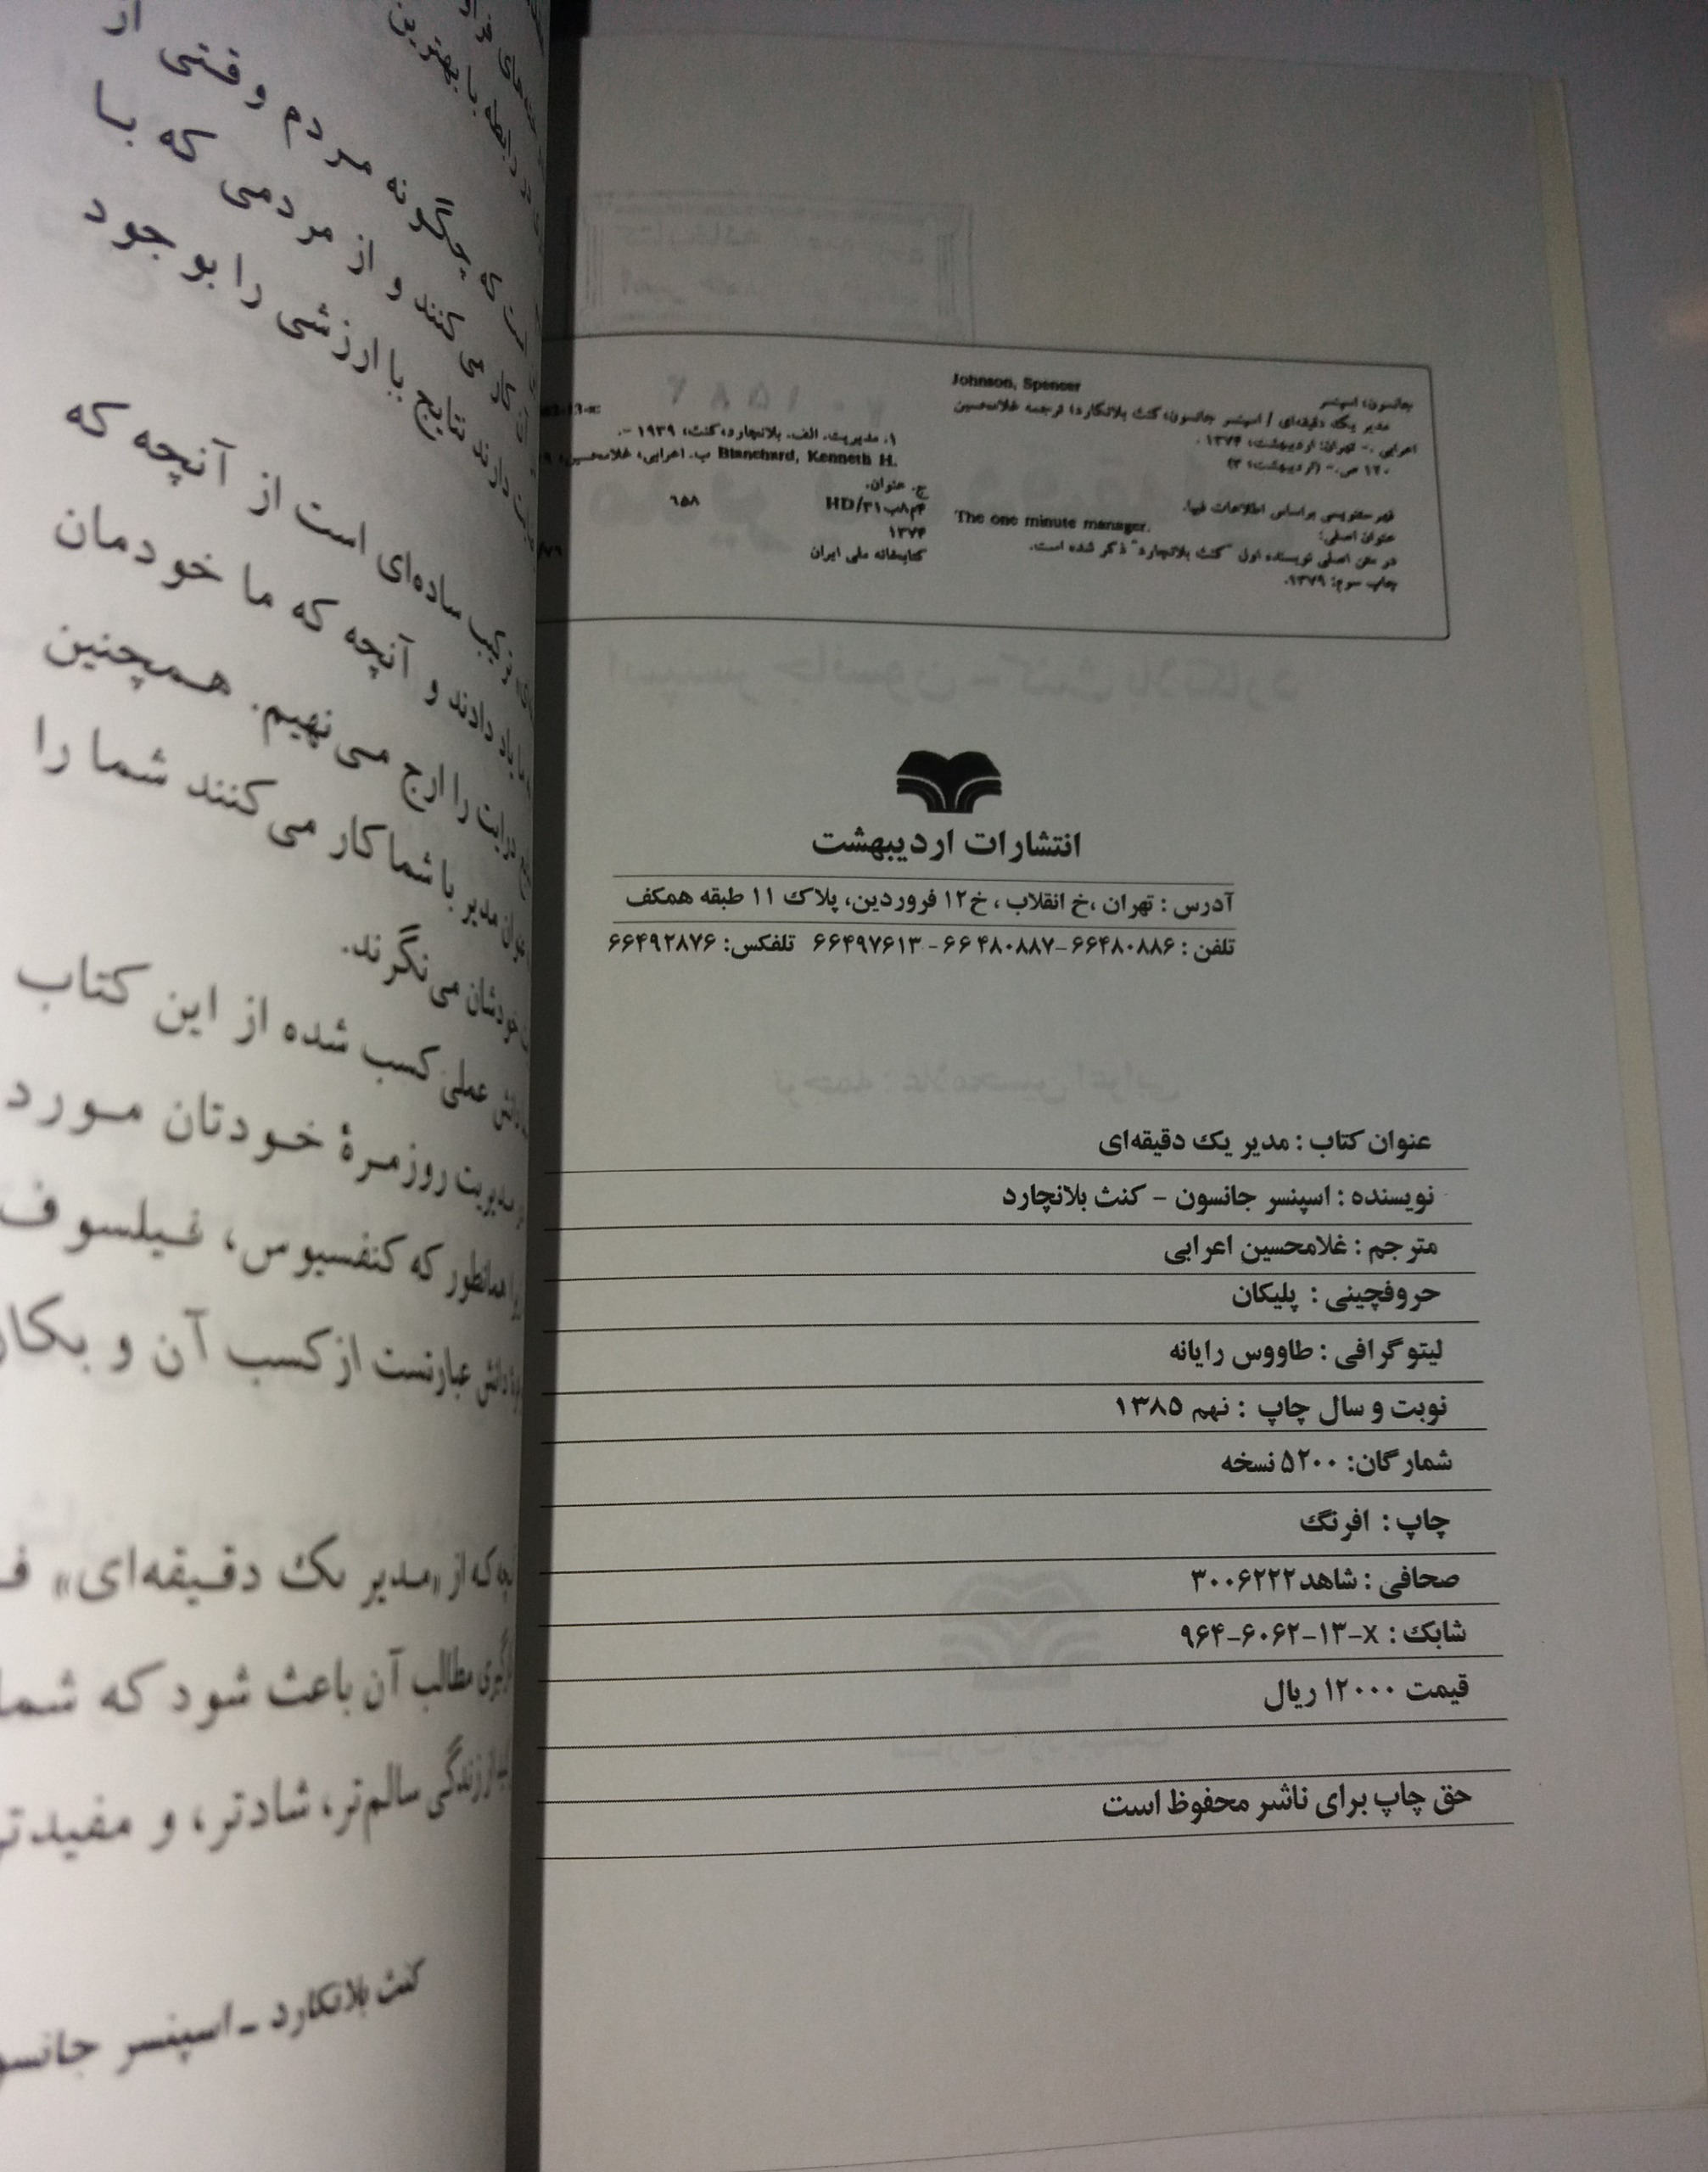 جانسون، اسپنسر
Johnson, Spencer
مدیر یک دقیقه‌ای / اسپنسر جانسون، کنث بلانکارد؛ ترجمه غلامحسین
اعرابی .- تهران: اردیبهشت، ۱۳۷۴.
۱۲۰ ص.- (اردیبهشت؛ ۳)
فهرستنویسی براساس اطلاعات فیپا.
عنوان اصلی:
The one minute manager.
در متن اصلی نویسنده اول "کنث بلانچارد" ذکر شده است.
چاپ سوم: ۱۳۷۹.
۱. مدیریت. الف. بلانچارد، کنث، ۱۹۳۹ -.
Blanchard, Kenneth H. ب. اعرابی، غلامحسین،
ج. عنوان.
۶۵۸
۱۳۷۴
کتابخانه ملی ایران
انتشارات اردیبهشت
آدرس : تهران ،خ انقلاب ، خ ۱۲ فروردین، پلاک ۱۱ طبقه همکف
تلفن : ۶۶۴۸۰۸۸۶-۶۶۴۸۰۸۸۷ - ۶۶۴۹۷۶۱۳ تلفکس: ۶۶۴۹۲۸۷۶
عنوان کتاب : مدیر یک دقیقه‌ای
نویسنده : اسپنسر جانسون - کنث بلانچارد
مترجم : غلامحسین اعرابی
حروفچینی : پلیکان
لیتوگرافی : طاووس رایانه
نوبت و سال چاپ : نهم ۱۳۸۵
شمارگان: ۵۲۰۰ نسخه
چاپ : افرنگ
صحافی : شاهد۳۰۰۶۲۲۲
شابک : X-۱۳-۶۰۶۲-۹۶۴
قیمت ۱۲۰۰۰ ریال
حق چاپ برای ناشر محفوظ است
رابطه با بهترین
که چگونه مردم وقتی از
کار می کنند و از مردمی که با
دارند نتایج با ارزشی را بوجود
ساده‌ای است از آنچه که
یاد دادند و آنچه که ما خودمان
درایت را ارج می‌نهیم. همچنین
مدیر با شما کار می‌کنند شما را
خودشان می‌نگرند.
عملی کسب شده از این کتاب
مدیریت روزمرهٔ خودتان مورد
همانطور که کنفسیوس، فیلسوف
دانش عبارتست از کسب آن و بکار
که از «مدیر یک دقیقه‌ای» ف
مطالب آن باعث شود که شما
از زندگی سالم‌تر، شادتر، و مفیدتر
کنث بلانکارد - اسپنسر جانسو